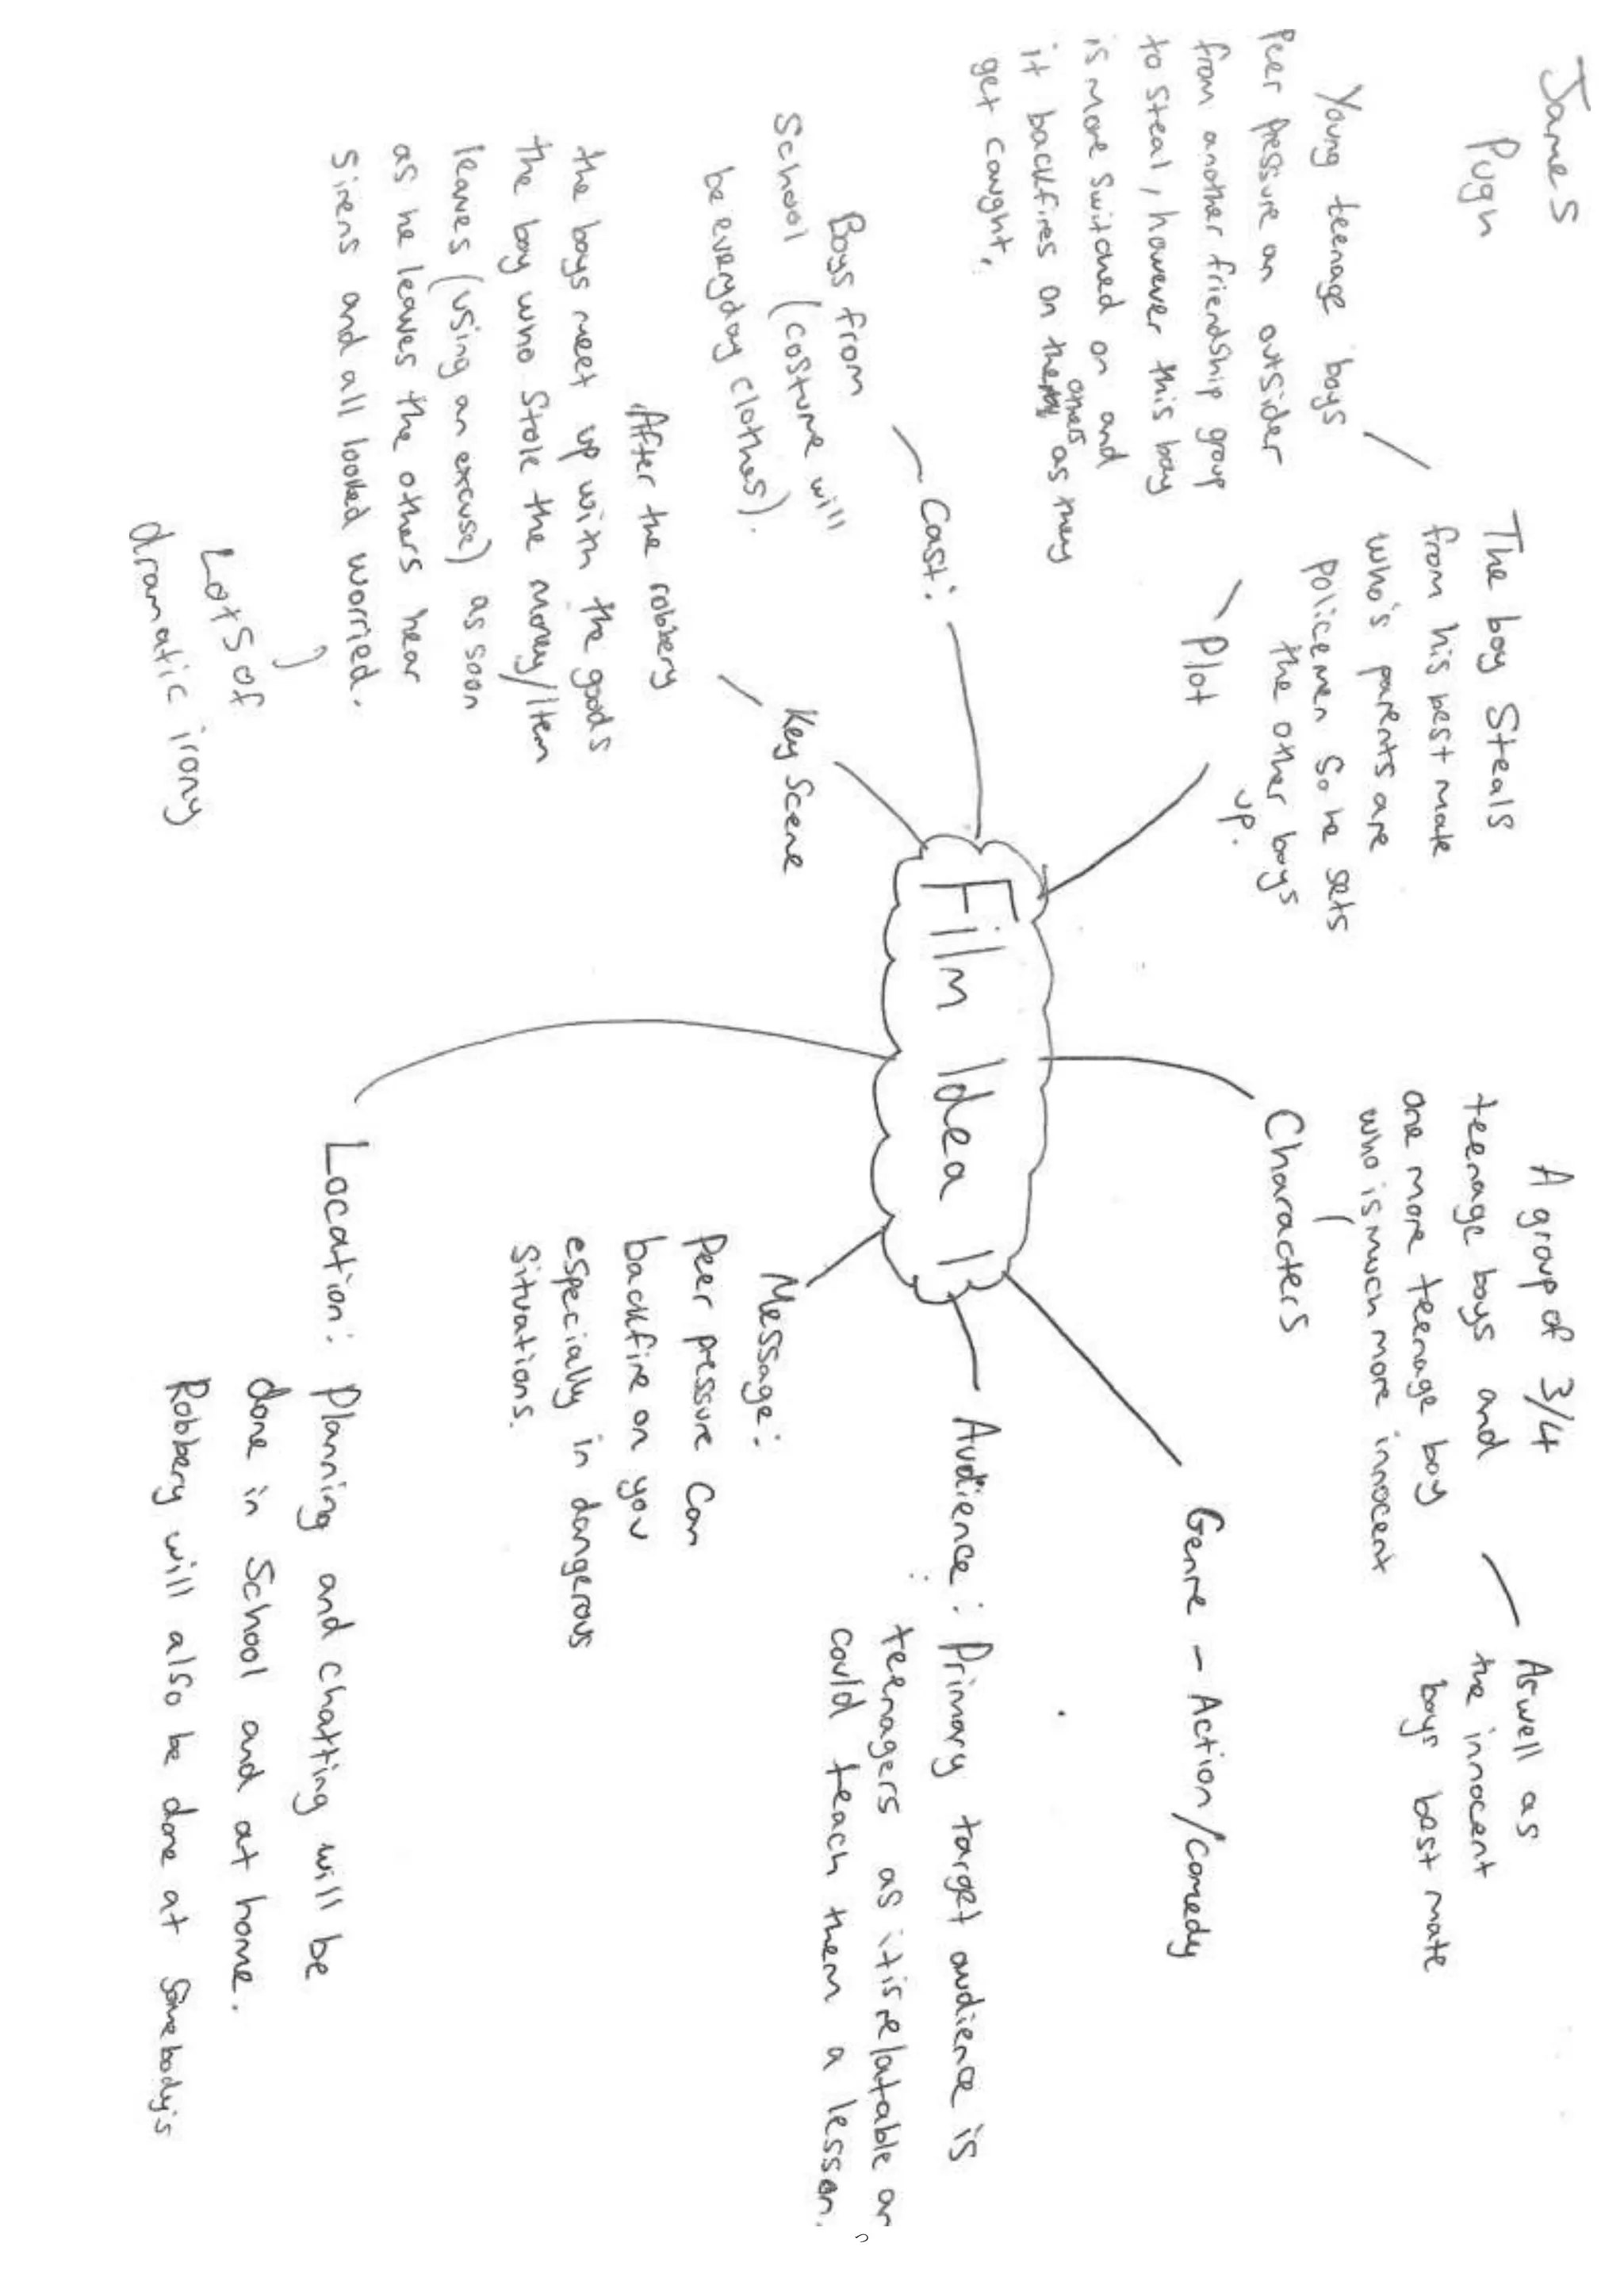 James
Pugh
Young teenage boys
Peer pressure an outsider
from another friendship group
to steal, however this boy
is more switched on and
it backfires on others as they
get caught.
The boy Steals
from his best mate
who's parents are
policemen so he sets
the other boys
up.
Plot
Cast:
Boys from
School (costume will
be everyday clothes).
Key Scene
After the robbery
the boys meet up with the goods
the boy who stole the money/item
leaves (using an excuse) as soon
as he leaves the others hear
sirens and all looked worried.
Lots of
dramatic irony
Film Idea 1
Characters
A group of 3/4
teenage boys and
one more teenage boy
who is much more innocent
Aswell as
the innocent
boys best mate
Genre - Action/comedy
Audience: Primary target audience is
teenagers as it is relatable an
could teach them a lesson.
Message:
Peer pressure can
backfire on you
especially in dangerous
situations.
Location: Planning and chatting will be
done in School and at home.
Robbery will also be done at somebody's